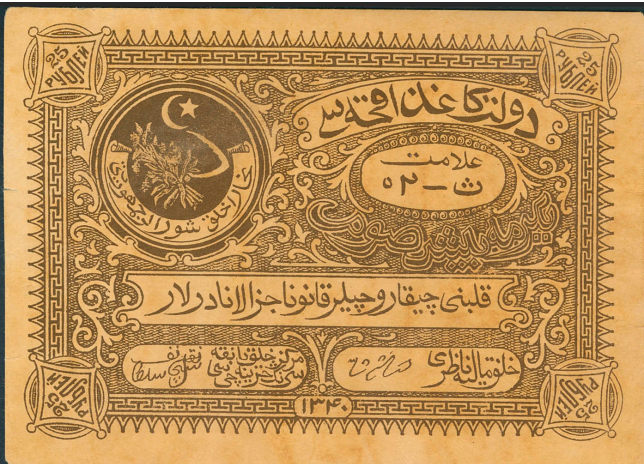 25 РУБЛЕЙ
25 РУБЛЕЙ
دولت کاغذ اقچه سی
علامت
ث – ٥٢
یگرمه بیش صوم
بخارا خلق شورالر جمهوریتی
قلبنی چیقاروچیلر قانونا جزالانادرلار
خلق مالیه ناظری
25 РУБЛЕЙ
١٣۴٠
25 РУБЛЕЙ